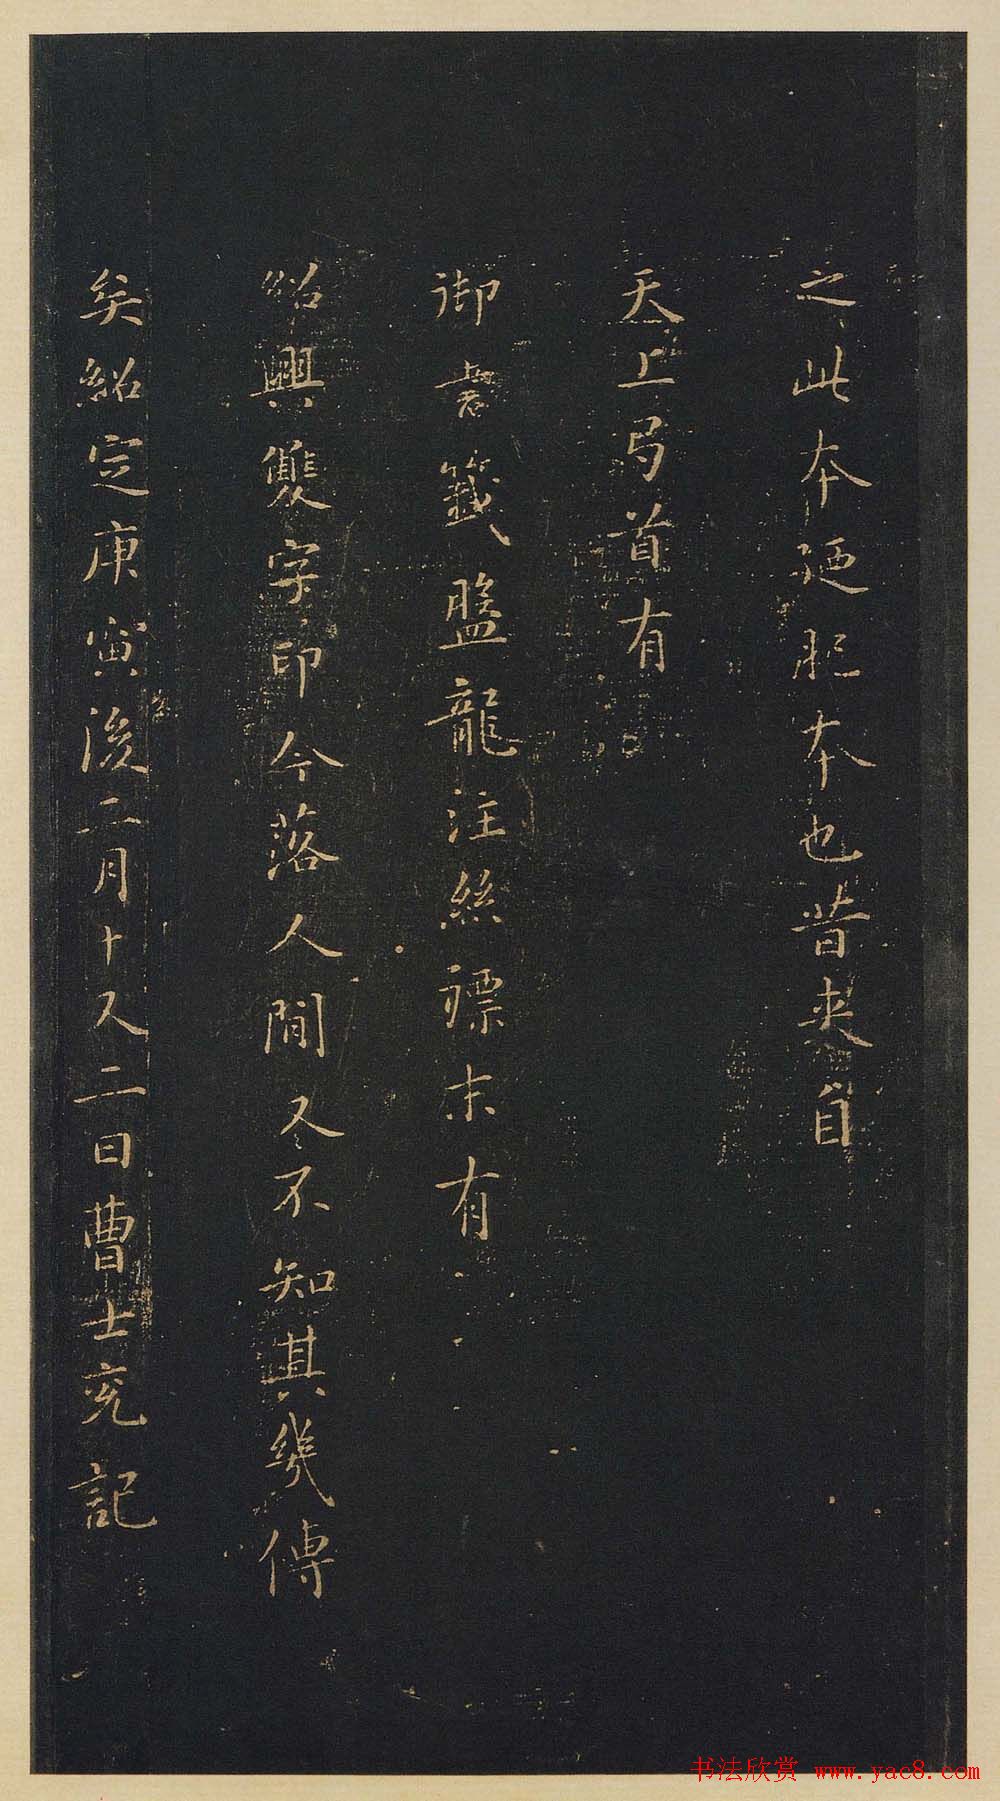 之此本迺肥本也昔夾自
天上另首有
御書籤盤龍注絲褾末有
紹興雙字印今落人間又不知其幾傳
矣紹定庚寅後二月十又二日曹士冕記
书法欣赏 www.yac8.com